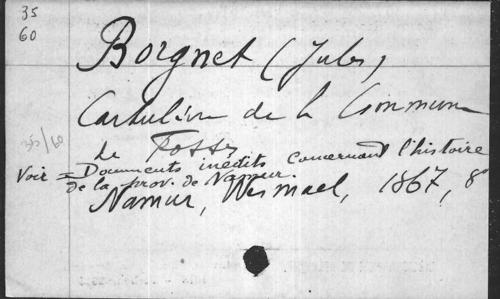 35
60
Borgnet (Jules)
Cartulaire de la Commune
35/60
de Fosses
Voir = Documents inédits concernant l'histoire
de la prov. de Namur.
Namur, Wesmael, 1867, 8°